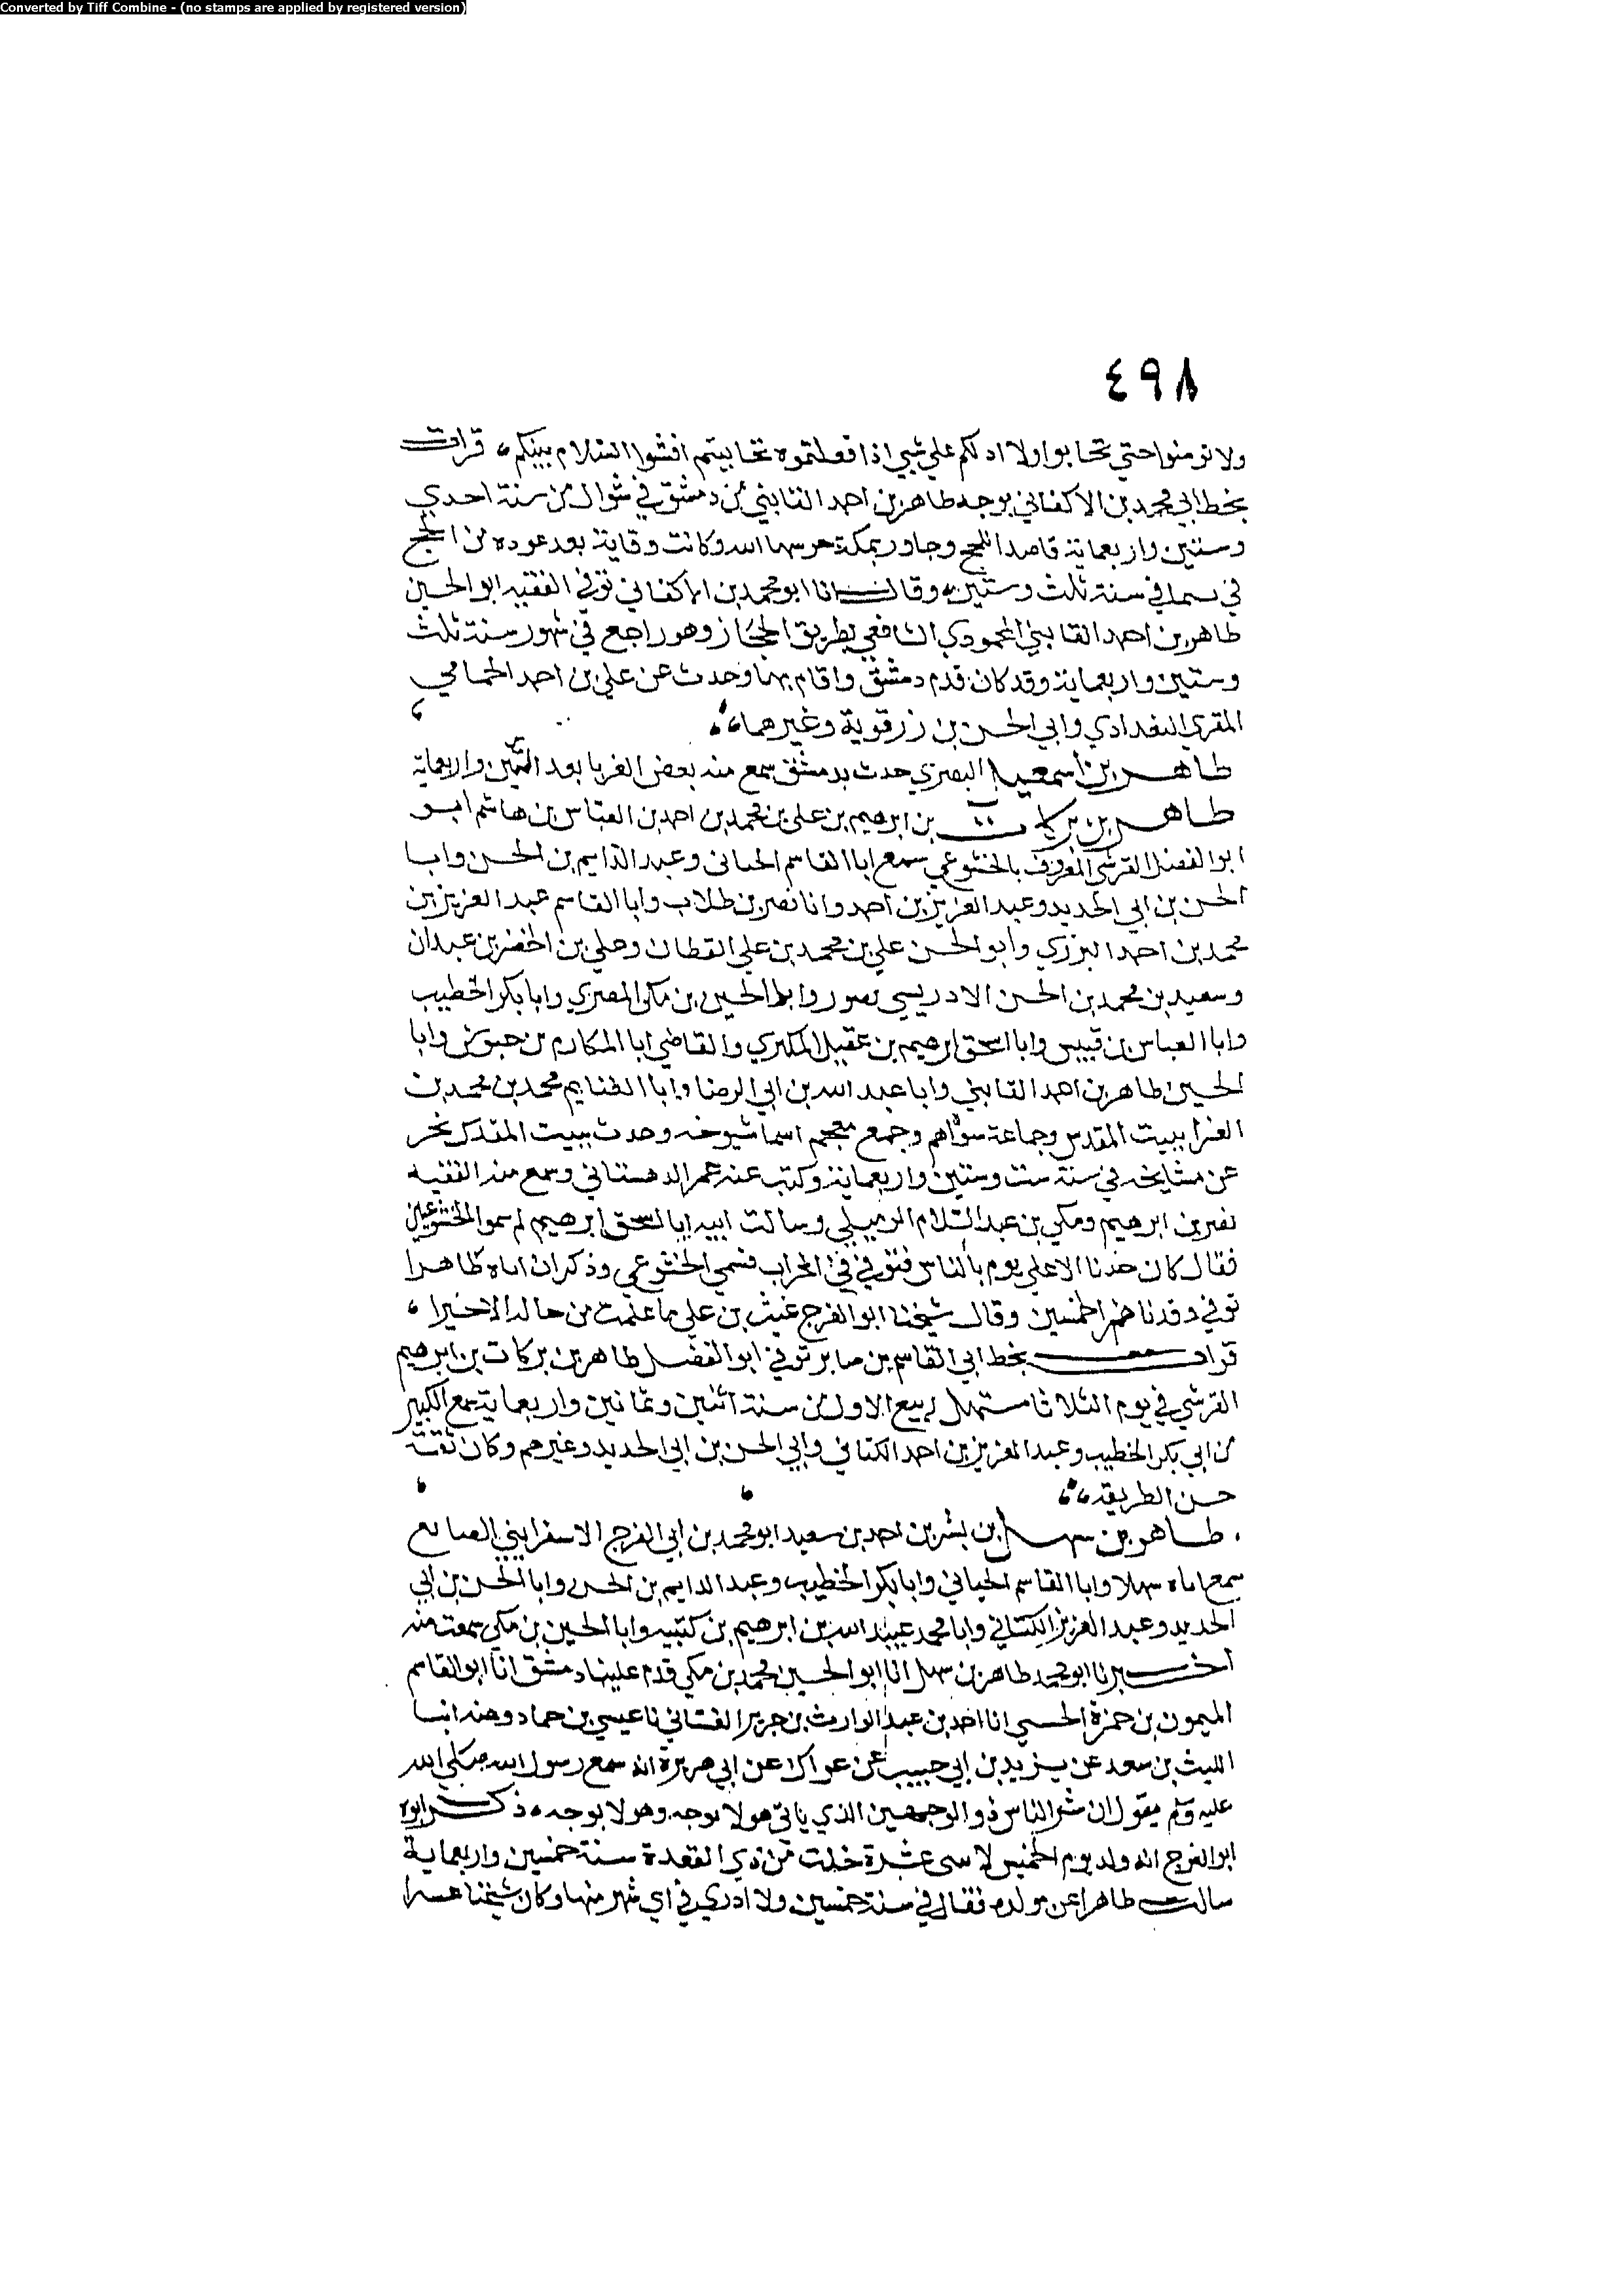 Converted by Tiff Combine - (no stamps are applied by registered version)
٤٩٨
ولا تومنوا حتي تحابوا اولا ادلكم علي شيي اذا فعلتموه تحاببتم افشوا السلام بينكم قرات
بخط ابي محمد بن الاكفاني توجه طاهر بن احمد القايني من دمشق في شوال من سنة احدي
وستين واربعماية قاصدا للحج وجاور بمكة حرسها الله وكانت وفاته بعد عوده من الحج
في سنة ثلث وستين وقال انا ابو محمد بن الاكفاني توفي الفقيه ابو الحسين
طاهر بن احمد القايني المحمودي الشافعي بطريق الحجاز وهو راجع في شهور سنة ثلث
وستين واربعماية وقد كان قدم دمشق واقام بها وحدث عن علي بن احمد الحمامي
المقري البغدادي وابي الحسن بن زرقوية وغيرهما
طاهر بن اسمعيل البصري حدث بدمشق سمع منه بعض الغربا بعد واربعماية
طاهر بن بركات بن ابرهيم بن علي بن محمد بن احمد بن العباس بن هاشم ابو
ابو الفضل القرشي المعروف بالخشوعي سمع ابا القاسم الحناني وعبد الدايم بن الحسن وابا
الحسن بن ابي الحديد وعبد العزيز بن احمد وانا نصر بن طلاب وابا القاسم عبد العزيز بن
محمد بن احمد وابو الحسن علي بن محمد بن علي القطان وعلي بن الخضر بن عبدان
وسعيد بن محمد بن الحسن الادريسي بصور وابا الحسين بن مكي المصري وابا بكر الخطيب
وابا العباس بن قبيس وابا اسحق ابرهيم بن عقيل المكبري والقاضي ابا المكارم بن وابا
الحسين طاهر بن احمد القايني وابا عبد الله بن ابي الرضا وابا الغنايم محمد بن محمد بن
الفرا ببيت المقدس وجماعة سواهم وجمع معجم اسما شيوخه وحدث ببيت المقدس
عن مشايخه في سنة ست وستين واربعماية وكتب عنه عمر الدهستاني وسمع منه الفقيه
نصر بن ابرهيم ومكي بن عبد السلام الرميلي وسالت ابنه ابا اسحق ابرهيم لم سموا الخشوعيين
فقال كان جدنا الاعلي يوم بالناس فتوفي في المحراب فسمي الخشوعي وذكر ان اباه طاهرا
توفي وقد الخمسين وقال شيخنا ابو الفرج غيث بن علي ما علمت من حاله الا خيرا
قرات بخط ابي القاسم بن صابر توفي ابو الفضل طاهر بن بركات بن ابرهيم
القرشي في يوم الثلاثا مستهل ربيع الاول من سنة اثنين وثمانين واربعماية سمع الكبير
من ابي بكر الخطيب وعبد العزيز بن احمد الكتاني وابي الحسن بن ابي الحديد وغيرهم وكان ثقة
حسن الطريقه
طاهر بن سهل بن بشر بن احمد بن سعيد ابو محمد بن ابي الفرج الاسفرايني الصايع
سمع اباه سهلا وابا القاسم الحناني وابا بكر الخطيب وعبد الدايم بن الحسن وابا الحسن بن ابي
الحديد وعبد العزيز الكتاني وابا محمد عبيد الله بن ابرهيم بن كتيبه وابا الحسين بن مكي سمعت منه
اخبرنا ابو محمد طاهر بن سهل انا ابو الحسين محمد بن مكي قدم علينا دمشق انا ابو القاسم
الميمون بن حمزة الحسيني انا احمد بن عبد الوارث بن جرير الغساني نا عيسي بن حماد انبا
الليث بن سعد عن يزيد بن ابي حبيب عن عراك عن ابي هريرة انه سمع رسول الله صلي الله
عليه وسلم يقول ان شر الناس ذو الوجهين الذي ياتي هولا بوجه وهولا بوجه ذكر ابوه
ابو الفرج انه ولد يوم الخميس عشرة خلت من ذي القعدة سنة خمسين واربعماية
سالت طاهرا عن مولده فقال في سنة خمسين ولا ادري في اي شهر منها وكان شيخنا عسرا